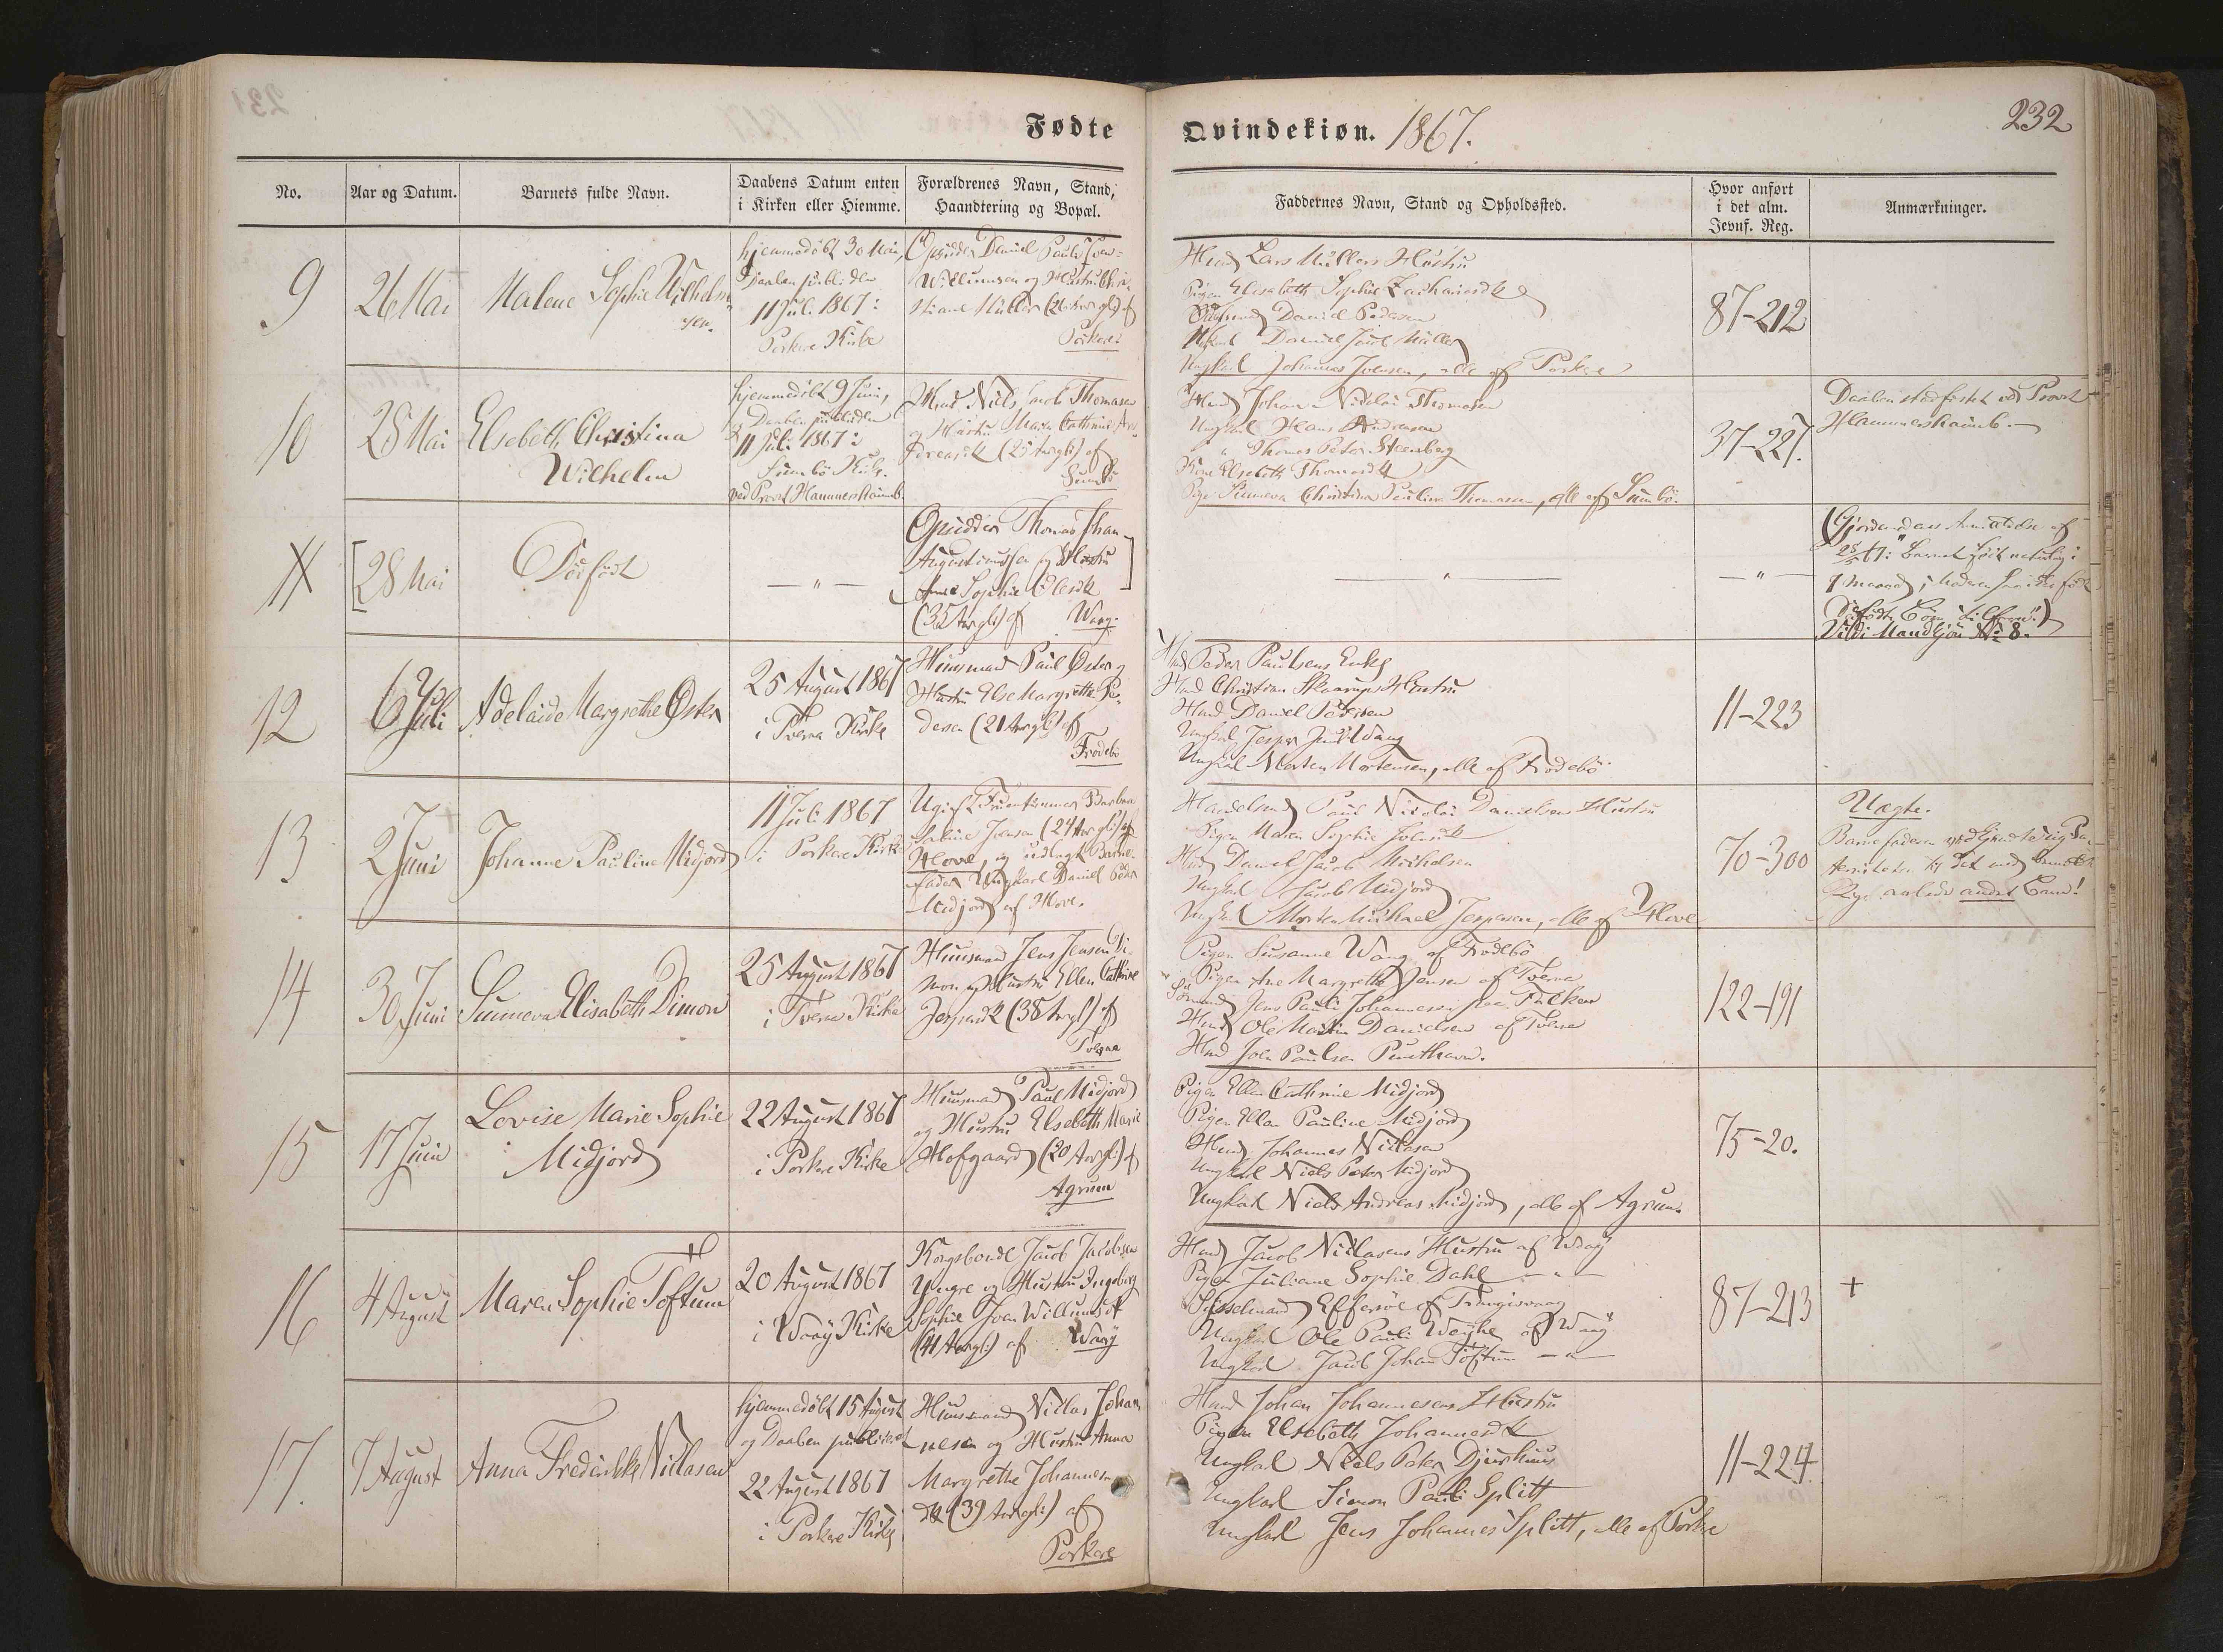 Fødte
Qvindekiøn. 1867.
232
No.
Aar og Datum.
Barnets fulde Navn.
Daabens Datum enten
i Kirken eller Hiemme.
Forældrenes Navn, Stand,
Haandtering og Bopæl.
Faddernes Navn, Stand og Opholdssted.
Hvor anført
i det alm.
Jevnf. Reg.
Anmærkninger.
9
26 Mai
Malene Sophie Wilhelm
sen.
hjemmedöbt 30 Mai,
Daaben
11 Juli 1867 i
Porkere Kirke
Opsidder Daniel Pauli
Willumsen og Hustru
Müller af
Porkere
Hmd Lars Müllers Hustru
Pigen Elisabeth Sophie
Daniel Pedersen
Daniel Jacob Müller
Ungkarl Johannes Joensen, alle af Porkere
87-212
10
28 Mai
Elsebeth Christina
Wilhelm
hjemmedöbt 9 Juni,
Daaben
11 Juli 1867 i
Sumbö Kirke
ved Provst Hammershaimb.
Hmd Niels Jacob Thomasen
og Hustru Maren Cathrine
(25 Aar gl:) af
Sumbö
Hmd Johan Nicolai Thomasen
Ungkarl Hans Andreasen
" Thomas Peter Steenberg
Kone Elsebeth Thomasd4
Pige Sunneva Christina Pauline Thomasen, alle af Sumbö.
37-227.
Daaben stadfæstet ved Provst
Hammershaimb.
11
[28 Mai
Dödfödt
— " —
Opsidder Thomas Johan
og Hustru
Anne Sophie Olesdtr ]
(35 Aar gl:) af Waag.
— " —
— " —
Barnet födt
Vide Mandkjön No 8.
12
6 Juli
Adelaide Margrethe Öster
25 August 1867
i Tveraa Kirke
Huusmand Paul Öster og
Hustru Else Margrethe Pe-
dersen (21 Aar gl:) af
Frodebö
Hmd Peder Paulsens Enke
Hmd Christian Skaarups Hustru
Hmd Daniel Pedersen
Ungkarl Jesper Juul Vang
Ungkarl Morten Mortensen, alle af Frodebö
11-223
13
2 Juni
Johanne Pauline Midjord
11 Juli 1867
i Porkere Kirke
Ugift Fruentimmer Barbra
Joensen (24 Aar gl:) af
Hove, og udlagt Barne-
fader Ungkarl Daniel Peder
Midjord af Hove.
Handelsmd Poul Nicolai Danielsens Hustru
Pigen Maren Sophie
Hmd Daniel Jacob Michelsen
Ungkarl Jacob Midjord
Ungk. Morten Michael Jespersen, alle af Hove
70-300
Uægte.
Barnefaderen vedkjendte sig Pa-
terniteten
andet Barn!
14
30 Juni
Sunneva Elisabeth Dimon
25 August 1867
i Tveraa Kirke
Huusmand Jens Jensen Di-
mon og Hustru Ellen Cathrine
Jespersd4 (38 Aar gl:) af
Tveraa
Pigen Susanne Wang af Frodebö
Pigen Ane Margrethe Jensen af Tveraa
Jens Pauli Johannesen
Hmd Ole Martin Danielsen af Tveraa
Hmd Joen Paulsen
122-191
15
17 Juni
Lovise Marie Sophie
Midjord
22 August 1867
i Porkere Kirke
Huusmand Paul Midjord
og Hustru Elsebeth Marie
Hofgaard (20 Aar gl:) af
Agrum
Pigen Ellen Cathrine Midjord
Pigen Ellen Pauline Midjord
Hmd Johannes Niclasen
Ungkarl Niels Peter Midjord
Ungkarl Niels Andreas Midjord, alle af Agrum.
75-20.
16
4 August
Maren Sophie Toftum
20 August 1867
i Waag Kirke
Kongsbonde Jacob Jacobsen
Yngre og Hustru Ingeborg
Sophie Joen Willumsdt
(41 Aar gl:) af Waag
Hmd Jacob Niclasens Hustru af Waag
Pigen Juliane Sophie Dahl — " —
Sysselmand Effersöe af Trangisvaag
Ungkarl Ole Pauli Weyhe af Waag
Ungkarl Jacob Johan Toftum — " —
87-213
+
17.
7 August
Anna Frederikke Niclasen
hjemmedöbt 15 August
og Daaben publiceret
22 August 1867
i Porkere Kirke
Huusmand Niclas Johan-
nesen og Hustru Anna
Margrethe Johannes
dtr (39 Aar gl:) af
Porkere
Hmd Johan Johannesens Hustru
Pigen Elsebeth Johannesd4
Ungkarl Niels Peter Djurhuus
Ungkarl Simon Pauli Splitt
Ungkarl Jens Johannes Splitt, alle af Porkere
11-224.